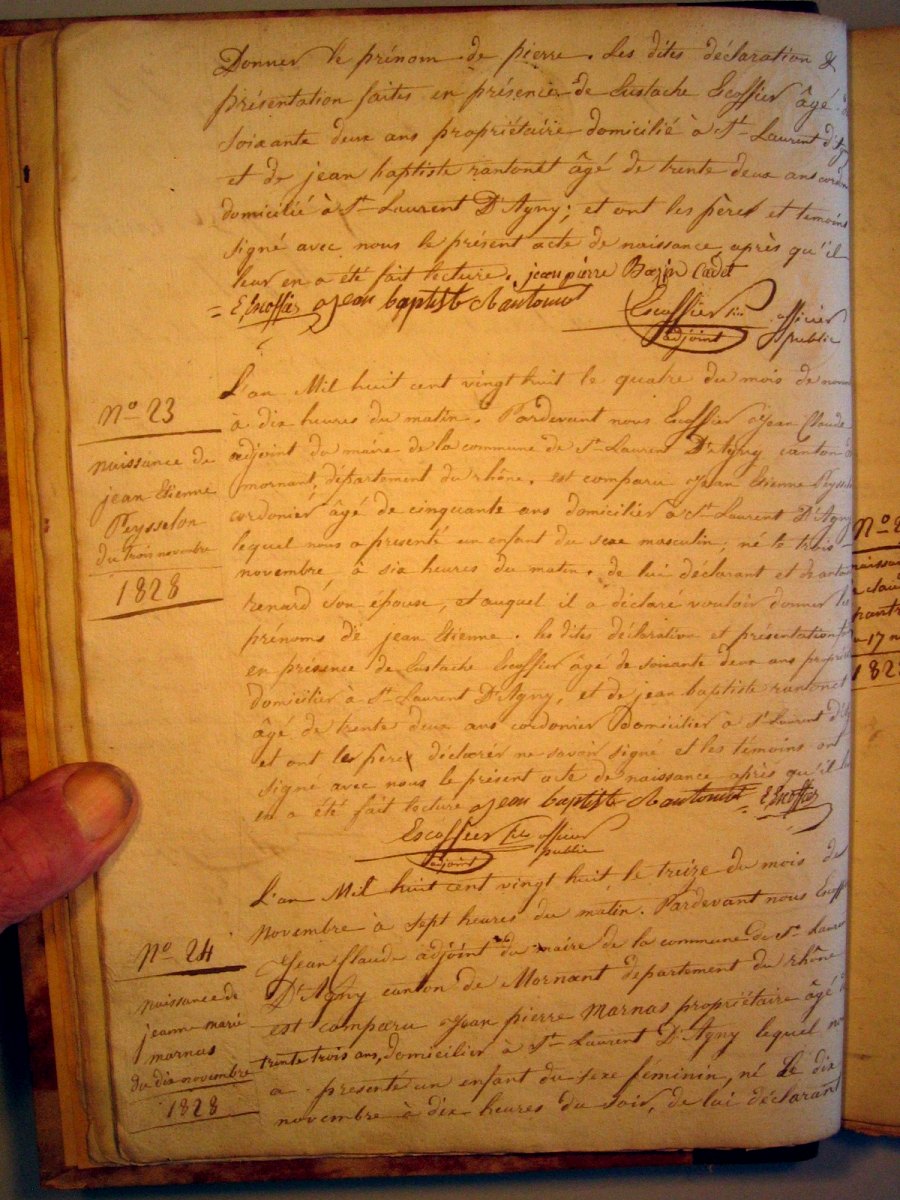 Donner le prénom de pierre. Les dites déclaration &
présentation faites en présence de Eustache Escoffier âgé
soixante deux ans propriétaire domicilié à St Laurent
et de jean baptiste rantonet âgé de trente deux ans
domicilié à St Laurent D'Agny; et ont les père et temoins
signé avec nous le présent acte de naissance après qu'il
leur en a été fait lecture. jean pierre Bazin Cadet
E Escoffier jean baptiste Rantonnet Escoffier officier
adjoint public
L'an Mil huit cent vingt huit le quatre du mois de
N° 23
à dix heures du matin. Pardevant nous Escoffier Jean Claude
adjoint du maire de la commune de St Laurent D'Agny canton
naissance de
mornant, département du rhône. est comparu Jean Etienne
jean Etienne
cordonier âgé de cinquante ans domicilier à St Laurent D'Agny
Peysselon
lequel nous a presenté un enfant du sexe masculin, né le trois
du trois novembre
novembre, à six heures du matin. de lui déclarant et
1828
renard son épouse, et auquel il a déclaré vouloir donner les
prénoms de jean Etienne. les dites déclaration et présentation
en présence de Eustache Escoffier âgé de soixante deux ans
domicilier à St Laurent D'Agny, et de jean baptiste rantonet
âgé de trente deux ans cordonnier Domicilier à St Laurent
et ont le père déclarér ne savoir signé et les témoins ont
signé avec nous le présent acte de naissance après qu'il
en a été fait lecture jean baptiste Rantonnet E Escoffier
Escoffier officier
adjoint public
L'an Mil huit cent vingt huit le treize du mois de
novembre à sept heures du matin. Pardevant nous
N° 24
Jean Claude adjoint du maire de la commune de St
D'Agny canton de Mornant departement du rhône
naissance de
est comparu Jean pierre Marnas propriétaire âgé
jeanne marie
trente trois ans, domicilier à St Laurent D'Agny lequel
marnas
a presenté un enfant du sexe féminin, né Le dix
du dix novembre
novembre à dix heures du soir, de lui déclarant
1828
N°
17